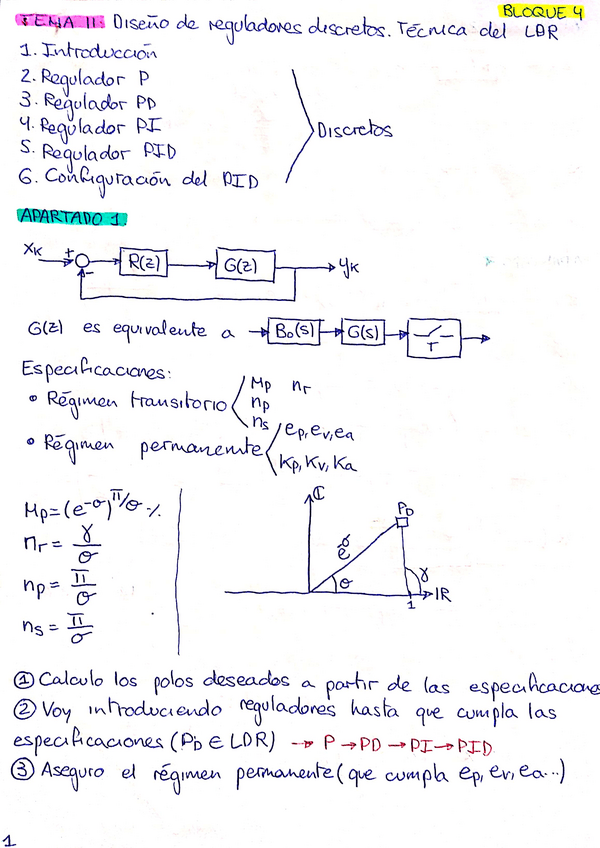 BLOQUE 4
TEMA 11: Diseño de reguladores discretos. Técnica del LDR
1. Introducción
2. Regulador P
3. Regulador PD
4. Regulador PI
5. Regulador PID
6. Configuración del PID
Discretos
APARTADO 1.
Xk + - R(z) G(z) yk
G(z) es equivalente a B₀(s) G(s) T
Especificaciones:
• Régimen transitorio Mp nr np ns
• Régimen permanente ep, ev, ea Kp, Kv, Ka
Mp = (e^-σ)^π/θ %
nr = γ/θ
np = π/θ
ns = π/σ
ℂ
PD
e^σ
θ
γ
1
IR
① Calculo los polos deseados a partir de las especificaciones
② Voy introduciendo reguladores hasta que cumpla las
especificaciones (PD ∈ LDR) → P → PD → PI → PID
③ Aseguro el régimen permanente (que cumpla ep, ev, ea...)
1